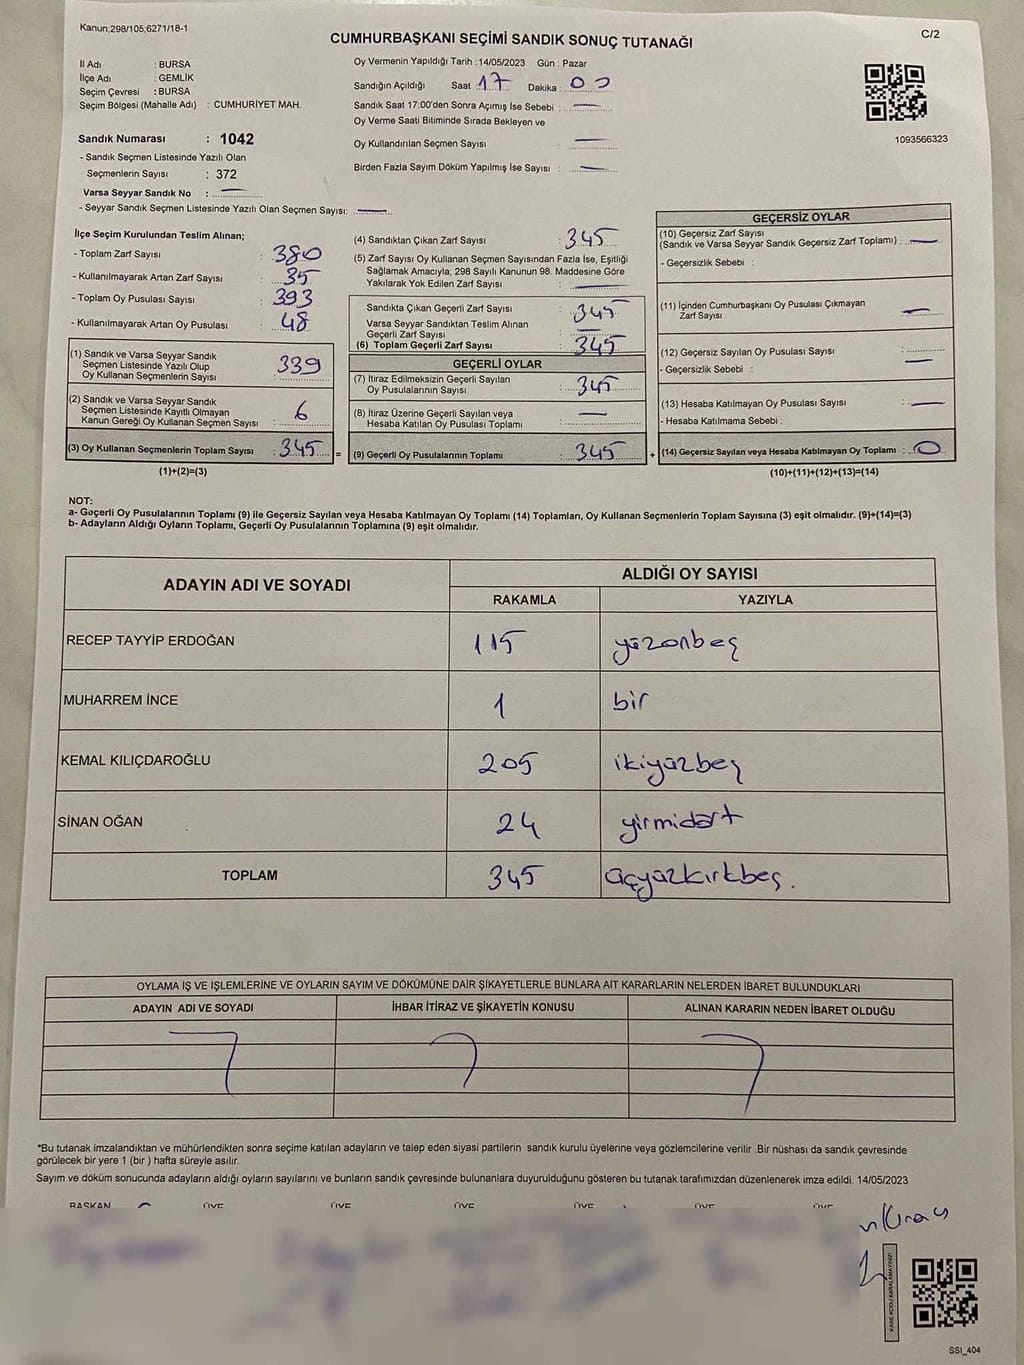 Kanun;298/105;6271/18-1
C/2
CUMHURBAŞKANI SEÇİMİ SANDIK SONUÇ TUTANAĞI
İl Adı : BURSA
İlçe Adı : GEMLİK
Seçim Çevresi : BURSA
Seçim Bölgesi (Mahalle Adı) : CUMHURİYET MAH.
Sandık Numarası : 1042
- Sandık Seçmen Listesinde Yazılı Olan
Seçmenlerin Sayısı : 372
Varsa Seyyar Sandık No : —
- Seyyar Sandık Seçmen Listesinde Yazılı Olan Seçmen Sayısı: —
Oy Vermenin Yapıldığı Tarih : 14/05/2023 Gün : Pazar
Sandığın Açıldığı Saat 17 Dakika : 00
Sandık Saat 17:00'den Sonra Açımış İse Sebebi : —
Oy Verme Saati Bitiminde Sırada Bekleyen ve
Oy Kullandırılan Seçmen Sayısı —
Birden Fazla Sayım Döküm Yapılmış İse Sayısı : —
1093566323
İlçe Seçim Kurulundan Teslim Alınan;
- Toplam Zarf Sayısı : 380
- Kullanılmayarak Artan Zarf Sayısı : 35
- Toplam Oy Pusulası Sayısı : 393
- Kullanılmayarak Artan Oy Pusulası : 48
(1) Sandık ve Varsa Seyyar Sandık
Seçmen Listesinde Yazılı Olup
Oy Kullanan Seçmenlerin Sayısı : 339
(2) Sandık ve Varsa Seyyar Sandık
Seçmen Listesinde Kayıtlı Olmayan
Kanun Gereği Oy Kullanan Seçmen Sayısı : 6
(3) Oy Kullanan Seçmenlerin Toplam Sayısı : 345 =
(1)+(2)=(3)
(4) Sandıktan Çıkan Zarf Sayısı : 345
(5) Zarf Sayısı Oy Kullanan Seçmen Sayısından Fazla İse, Eşitliği
Sağlamak Amacıyla; 298 Sayılı Kanunun 98. Maddesine Göre
Yakılarak Yok Edilen Zarf Sayısı : —
Sandıkta Çıkan Geçerli Zarf Sayısı : 345
Varsa Seyyar Sandıktan Teslim Alınan
Geçerli Zarf Sayısı : —
(6) Toplam Geçerli Zarf Sayısı : 345
GEÇERLİ OYLAR
(7) İtiraz Edilmeksizin Geçerli Sayılan
Oy Pusulalarının Sayısı : 345
(8) İtiraz Üzerine Geçerli Sayılan veya
Hesaba Katılan Oy Pusulası Toplamı : —
(9) Geçerli Oy Pusulalarının Toplamı : 345 +
GEÇERSİZ OYLAR
(10) Geçersiz Zarf Sayısı
(Sandık ve Varsa Seyyar Sandık Geçersiz Zarf Toplamı) : —
- Geçersizlik Sebebi :
(11) İçinden Cumhurbaşkanı Oy Pusulası Çıkmayan
Zarf Sayısı : —
(12) Geçersiz Sayılan Oy Pusulası Sayısı : —
- Geçersizlik Sebebi :
(13) Hesaba Katılmayan Oy Pusulası Sayısı : —
- Hesaba Katılmama Sebebi :
(14) Geçersiz Sayılan veya Hesaba Katılmayan Oy Toplamı : 0
(10)+(11)+(12)+(13)=(14)
NOT:
a- Geçerli Oy Pusulalarının Toplamı (9) ile Geçersiz Sayılan veya Hesaba Katılmayan Oy Toplamı (14) Toplamları, Oy Kullanan Seçmenlerin Toplam Sayısına (3) eşit olmalıdır. (9)+(14)=(3)
b- Adayların Aldığı Oyların Toplamı, Geçerli Oy Pusulalarının Toplamına (9) eşit olmalıdır.
ADAYIN ADI VE SOYADI ALDIĞI OY SAYISI
RAKAMLA YAZIYLA
RECEP TAYYİP ERDOĞAN 115 yüzonbeş
MUHARREM İNCE 1 bir
KEMAL KILIÇDAROĞLU 205 ikiyüzbeş
SİNAN OĞAN 24 yirmidört
TOPLAM 345 üçyüzkırkbeş.
OYLAMA İŞ VE İŞLEMLERİNE VE OYLARIN SAYIM VE DÖKÜMÜNE DAİR ŞİKAYETLERLE BUNLARA AİT KARARLARIN NELERDEN İBARET BULUNDUKLARI
ADAYIN ADI VE SOYADI İHBAR İTİRAZ VE ŞİKAYETİN KONUSU ALINAN KARARIN NEDEN İBARET OLDUĞU
*Bu tutanak imzalandıktan ve mühürlendikten sonra seçime katılan adayların ve talep eden siyasi partilerin sandık kurulu üyelerine veya gözlemcilerine verilir .Bir nüshası da sandık çevresinde
görülecek bir yere 1 (bir ) hafta süreyle asılır.
Sayım ve döküm sonucunda adayların aldığı oyların sayılarını ve bunların sandık çevresinde bulunanlara duyurulduğunu gösteren bu tutanak tarafımızdan düzenlenerek imza edildi. 14/05/2023
BAŞKAN ÜYE ÜYE ÜYE ÜYE ÜYE ÜYE
KARE KODU KARALAMAYINIZ!
SSI_404